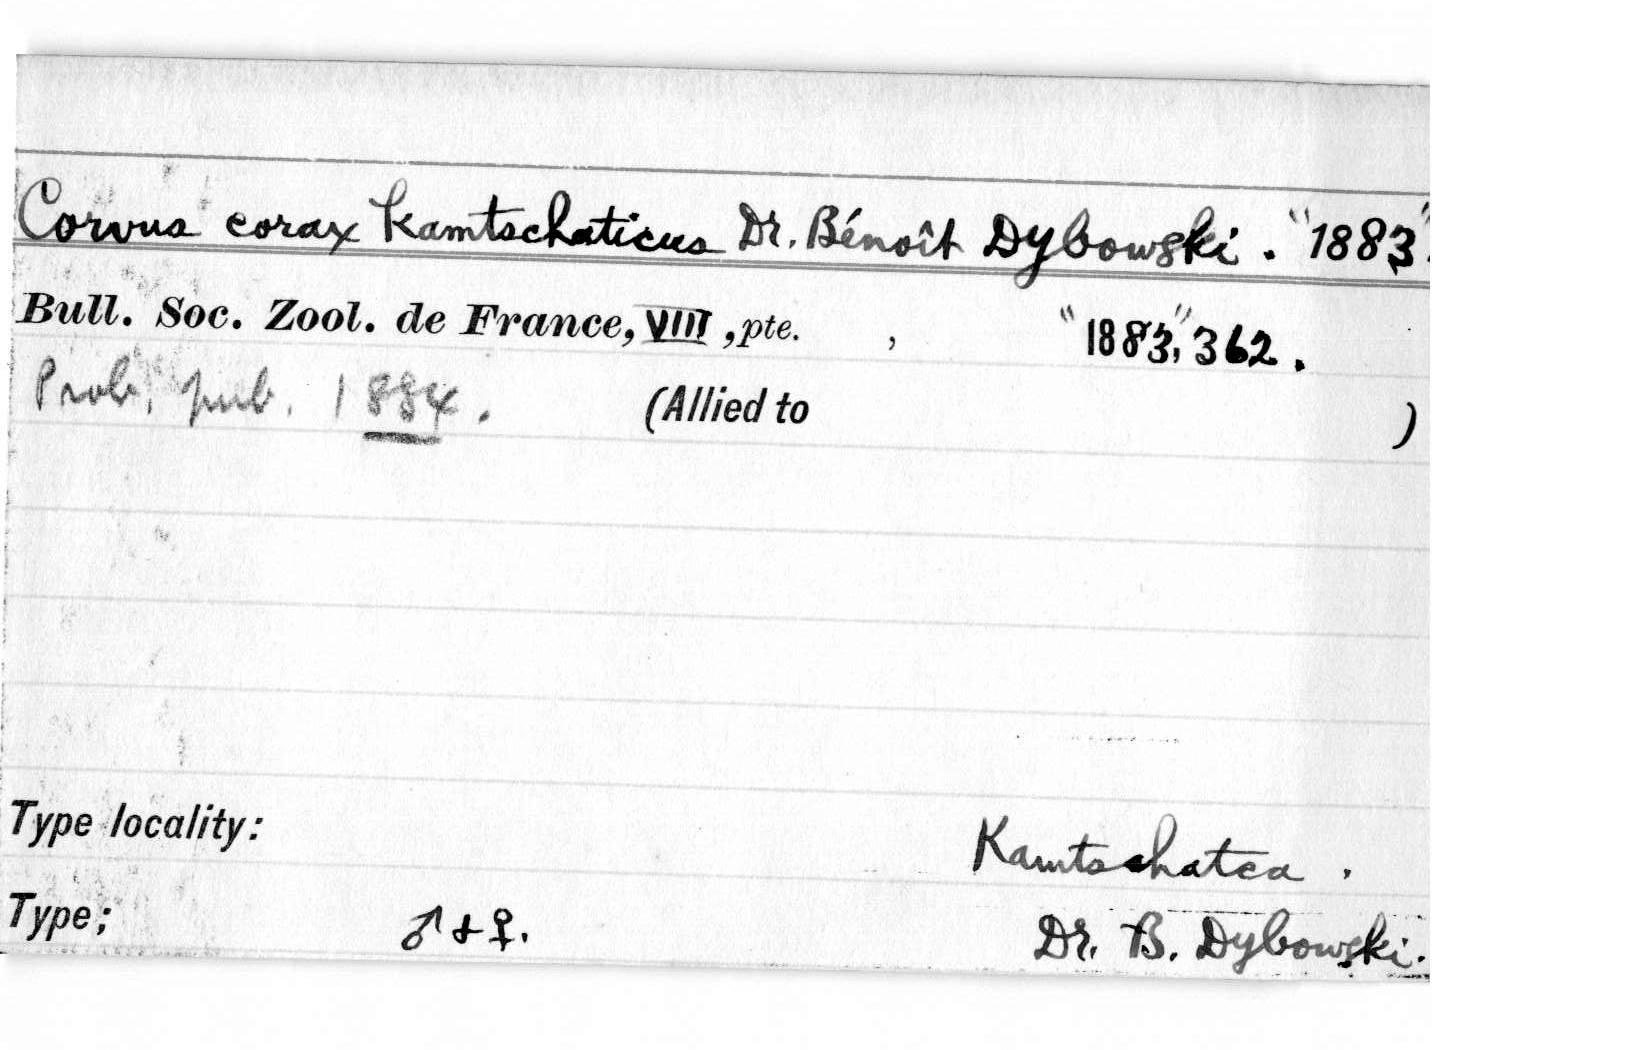 Corvus corax kamtschaticus Dr. Bénoît Dybowski. "1883".
Bull. Soc. Zool. de France, VIII, pte. , "1883," 362.
Prob. pub. 1884. (Allied to )
Type locality: Kamtschatca.
Type; ♂ & ♀. Dr. B. Dybowski.